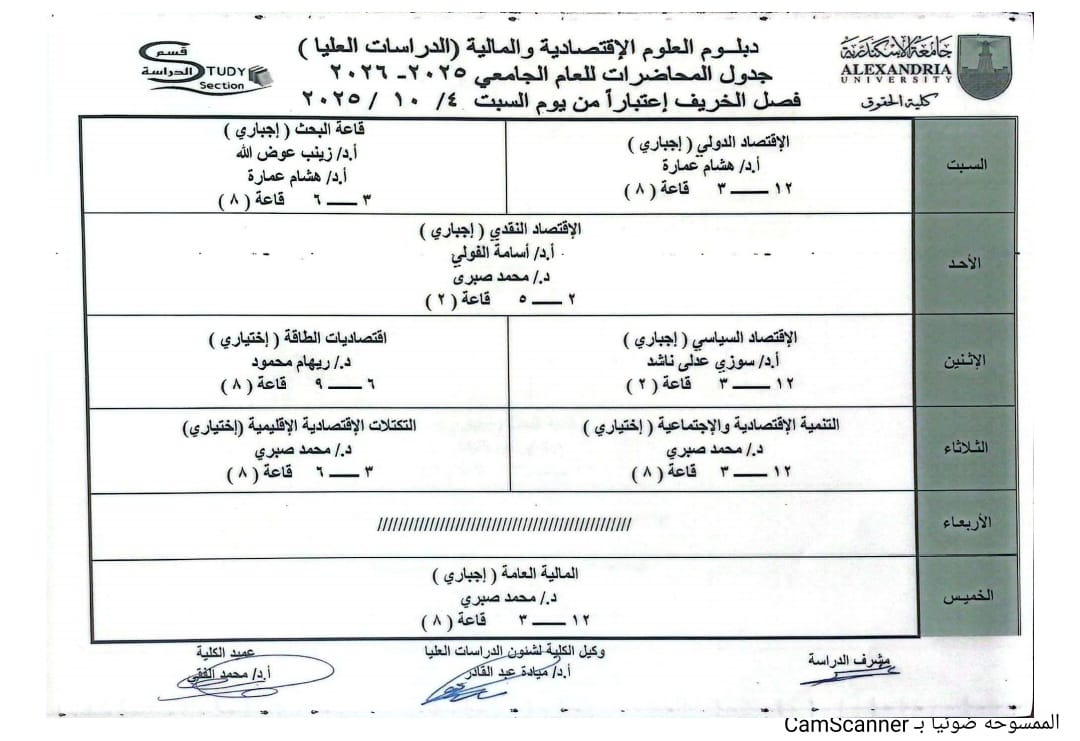 دبلـوم العلوم الإقتصادية والمالية (الدراسات العليا )
جدول المحاضرات للعام الجامعي ٢٠٢٥- ٢٠٢٦
فصل الخريف إعتباراً من يوم السبت ٤/ ١٠ / ٢٠٢٥
جامعة الإسكندرية
ALEXANDRIA
UNIVERSITY
كلية الحقوق
قسم
الدراسة
STUDY
Section
السبت
الإقتصاد الدولي ( إجباري )
أ.د/ هشام عمارة
١٢ ــــــ ٣ قاعة ( ٨ )
قاعة البحث ( إجباري )
أ.د/ زينب عوض الله
أ.د/ هشام عمارة
٣ ــــــ ٦ قاعة ( ٨ )
الأحد
الإقتصاد النقدي ( إجباري )
أ.د/ أسامة الفولي
د./ محمد صبرى
٢ ــــــ ٥ قاعة ( ٢ )
الإثنين
الإقتصاد السياسي ( إجباري )
أ.د/ سوزي عدلى ناشد
١٢ ــــــ ٣ قاعة ( ٢ )
اقتصاديات الطاقة ( إختياري )
د./ ريهام محمود
٦ ــــــ ٩ قاعة ( ٨ )
الثلاثاء
التنمية الإقتصادية والإجتماعية ( إختياري )
د./ محمد صبري
١٢ ــــــ ٣ قاعة ( ٨ )
التكتلات الإقتصادية الإقليمية (إختياري)
د./ محمد صبري
٣ ــــــ ٦ قاعة ( ٨ )
الأربعاء
//////////////////////////////////////////////////
الخميس
المالية العامة ( إجباري )
د./ محمد صبري
١٢ ــــــ ٣ قاعة ( ٨ )
مشرف الدراسة
وكيل الكلية لشئون الدراسات العليا
أ.د/ ميادة عبد القادر
عميد الكلية
أ.د/ محمد الفقي
الممسوحة ضوئيا بـ CamScanner